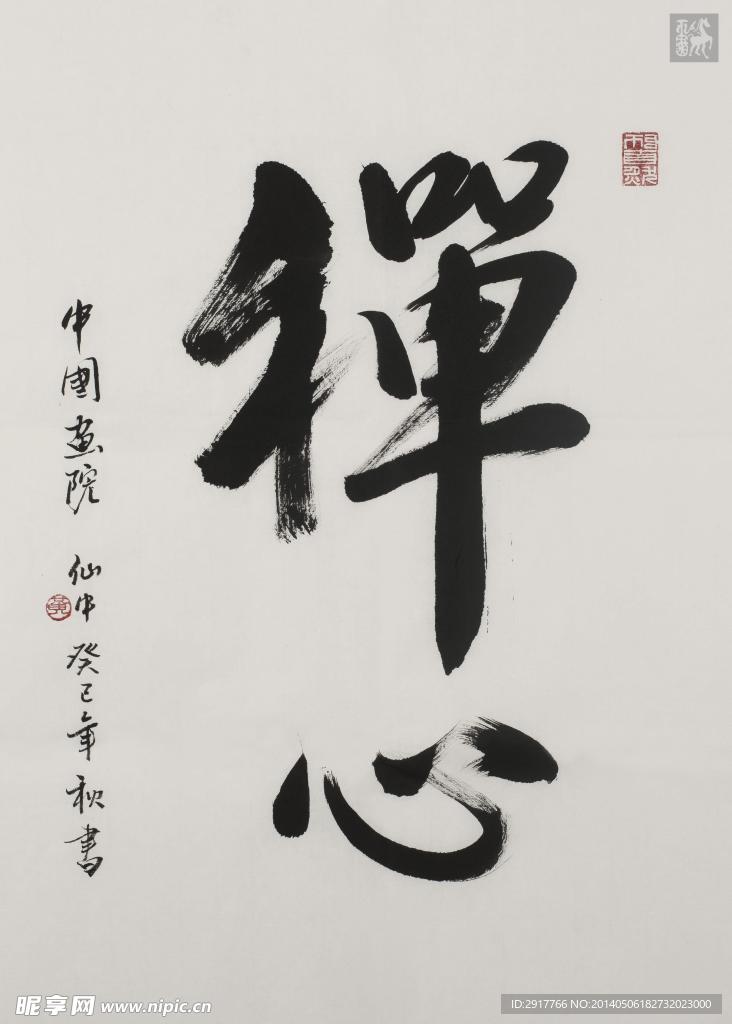 禪心
中國畫院 仙中 癸巳年秋書
黃
昵享网 www.nipic.cn
ID:2917766 NO:20140506182732023000